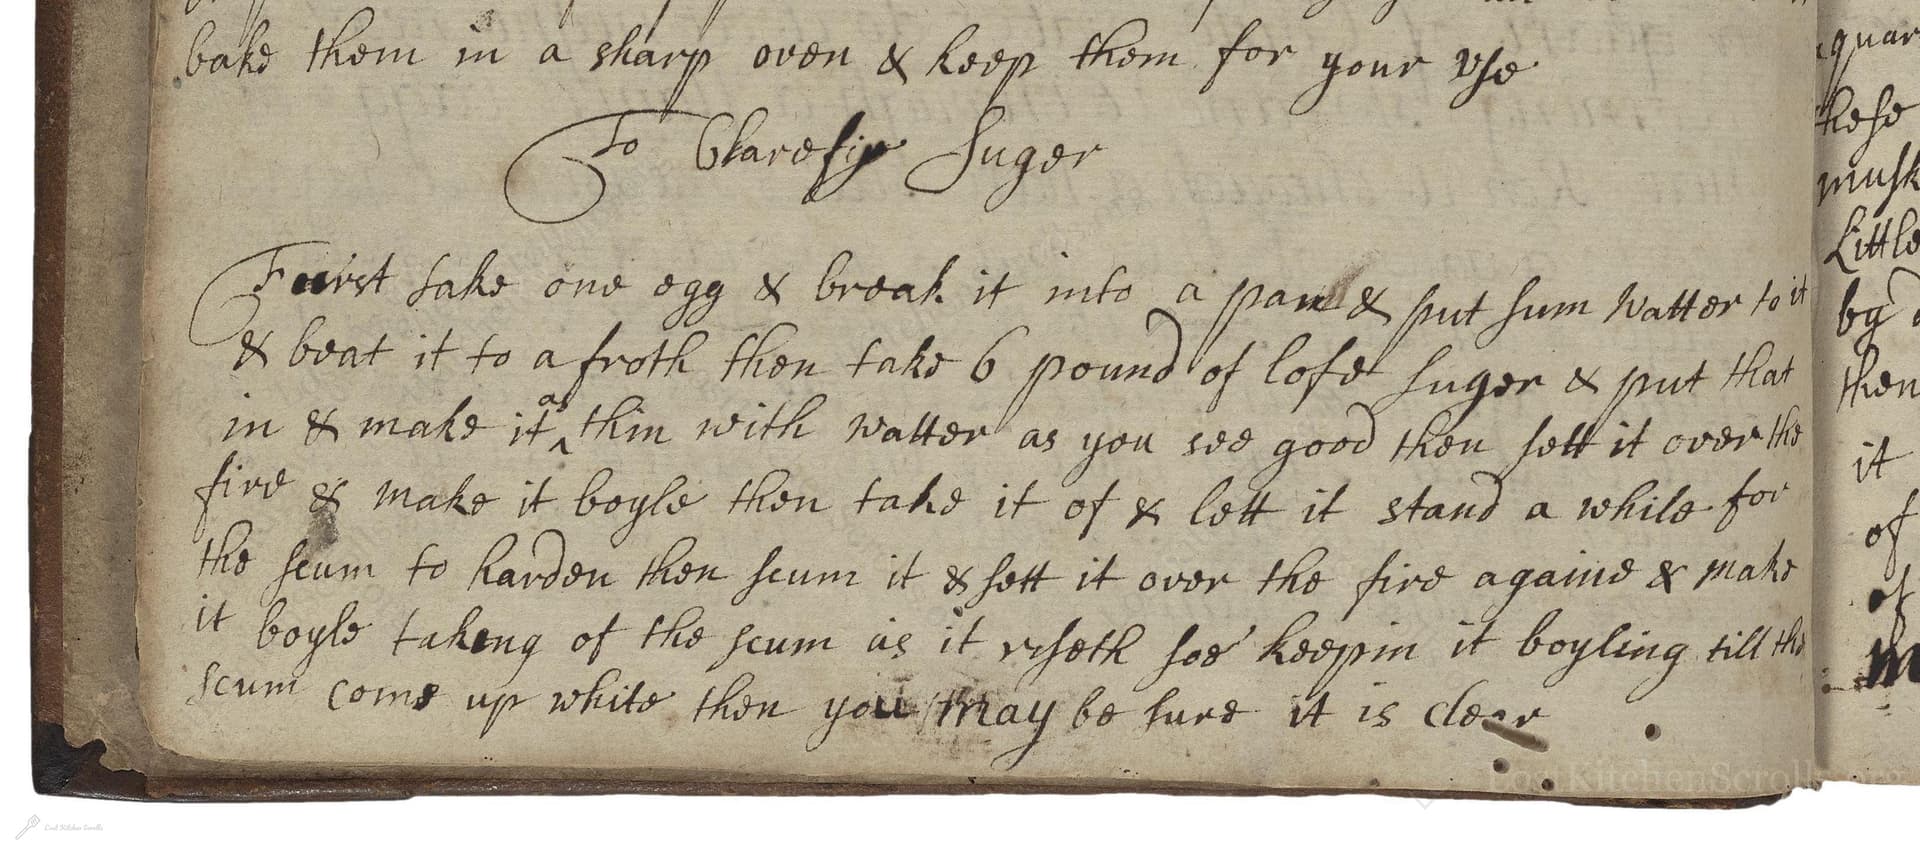 bake them in a sharp oven & keep them for your vse
To Clarefiy Suger
First take one egg & break it into a pan & put sum Watter to it
& beat it to a froth then take 6 pound of lofe suger & put that
in & make it as thin with watter as you see good then sett it over the
fire & make it boyle then take it of & lett it stand a while for
the scum to harden then scum it & sett it over the fire againe & make
it boyle takeing of the scum as it riseth soe keepin it boyling till the
scum come up white then you may be sure it is clear
quar
these
musk
Little
by
then
it
of
of
LostKitchenScrolls.org
Lost Kitchen Scrolls